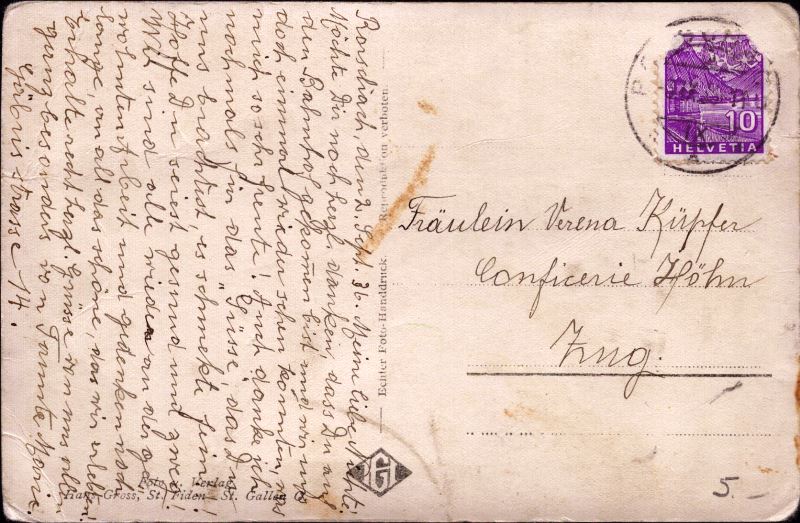 Rorschach, den 2. Sept. 36. Meine liebe Nichte!
Möchte Dir noch herzl. danken, dass Du auf
den Bahnhof gekomen bist und wir uns
doch einmal wieder sehen konnten, was
mich so sehr freute! Auch danke ich
nochmals für das "Süsse, das Du
uns brachtest, es schmekte fein!
Hoffe Du seiest gesund und zweg!
Wir sind alle wieder an der ge-
wohnten Arbeit und gedenken noch
lange, an all das schöne, das wir erleben.
behalte recht herzl. Grüsse von uns allen
besonders von Tannte Marie.
strasse 14.
Echter Foto-Handdruck. Reproduktion verboten
Foto u. Verlag
Hans Gross, St. Fiden - St. Gallen O.
10
HELVETIA
Fräulein Verena Küpfer
Conficerie Höhn
Zug.
5.-